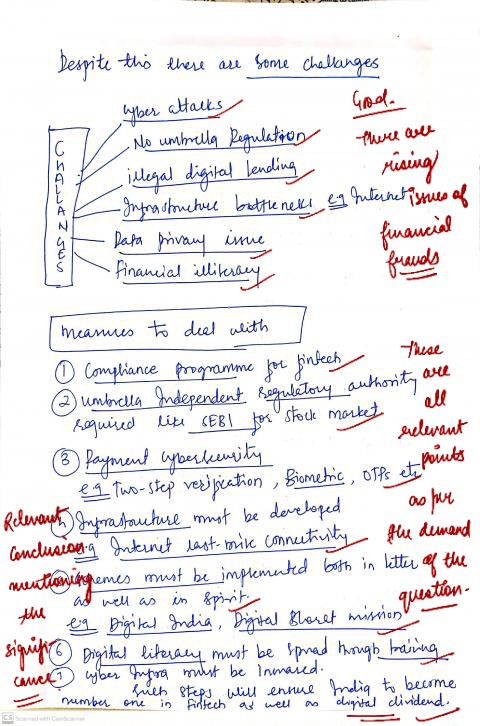 Despite this there are some challanges
CHALLANGES
cyber attacks
No umbrella Regulation
illegal digital lending
Infrastructure bottlenecks e.g Internet
Data privacy issue
Financial illiteracy
Good.
There are
rising
issues of
financial
frauds
measures to deal with
① Compliance programme for fintech
② umbrella Independent regulatory authority
required like SEBI for stock market
③ Payment cybersecurity
e.g Two-step verification, Biometric, OTPs etc
Infrastructure must be developed
e.g Internet last-mile connectivity
must be implemented both in letter
as well as in spirit.
e.g Digital India, Digital Bharat mission
⑥ Digital literacy must be spread through training
⑦ cyber Infra must be
Such steps will ensure India to become
number one in fintech as well as digital dividend.
These
are
all
relevant
points
as per
the demand
of the
question.
Relevant
conclusion
mentioning
the
signifi-
cance
CS Scanned with CamScanner